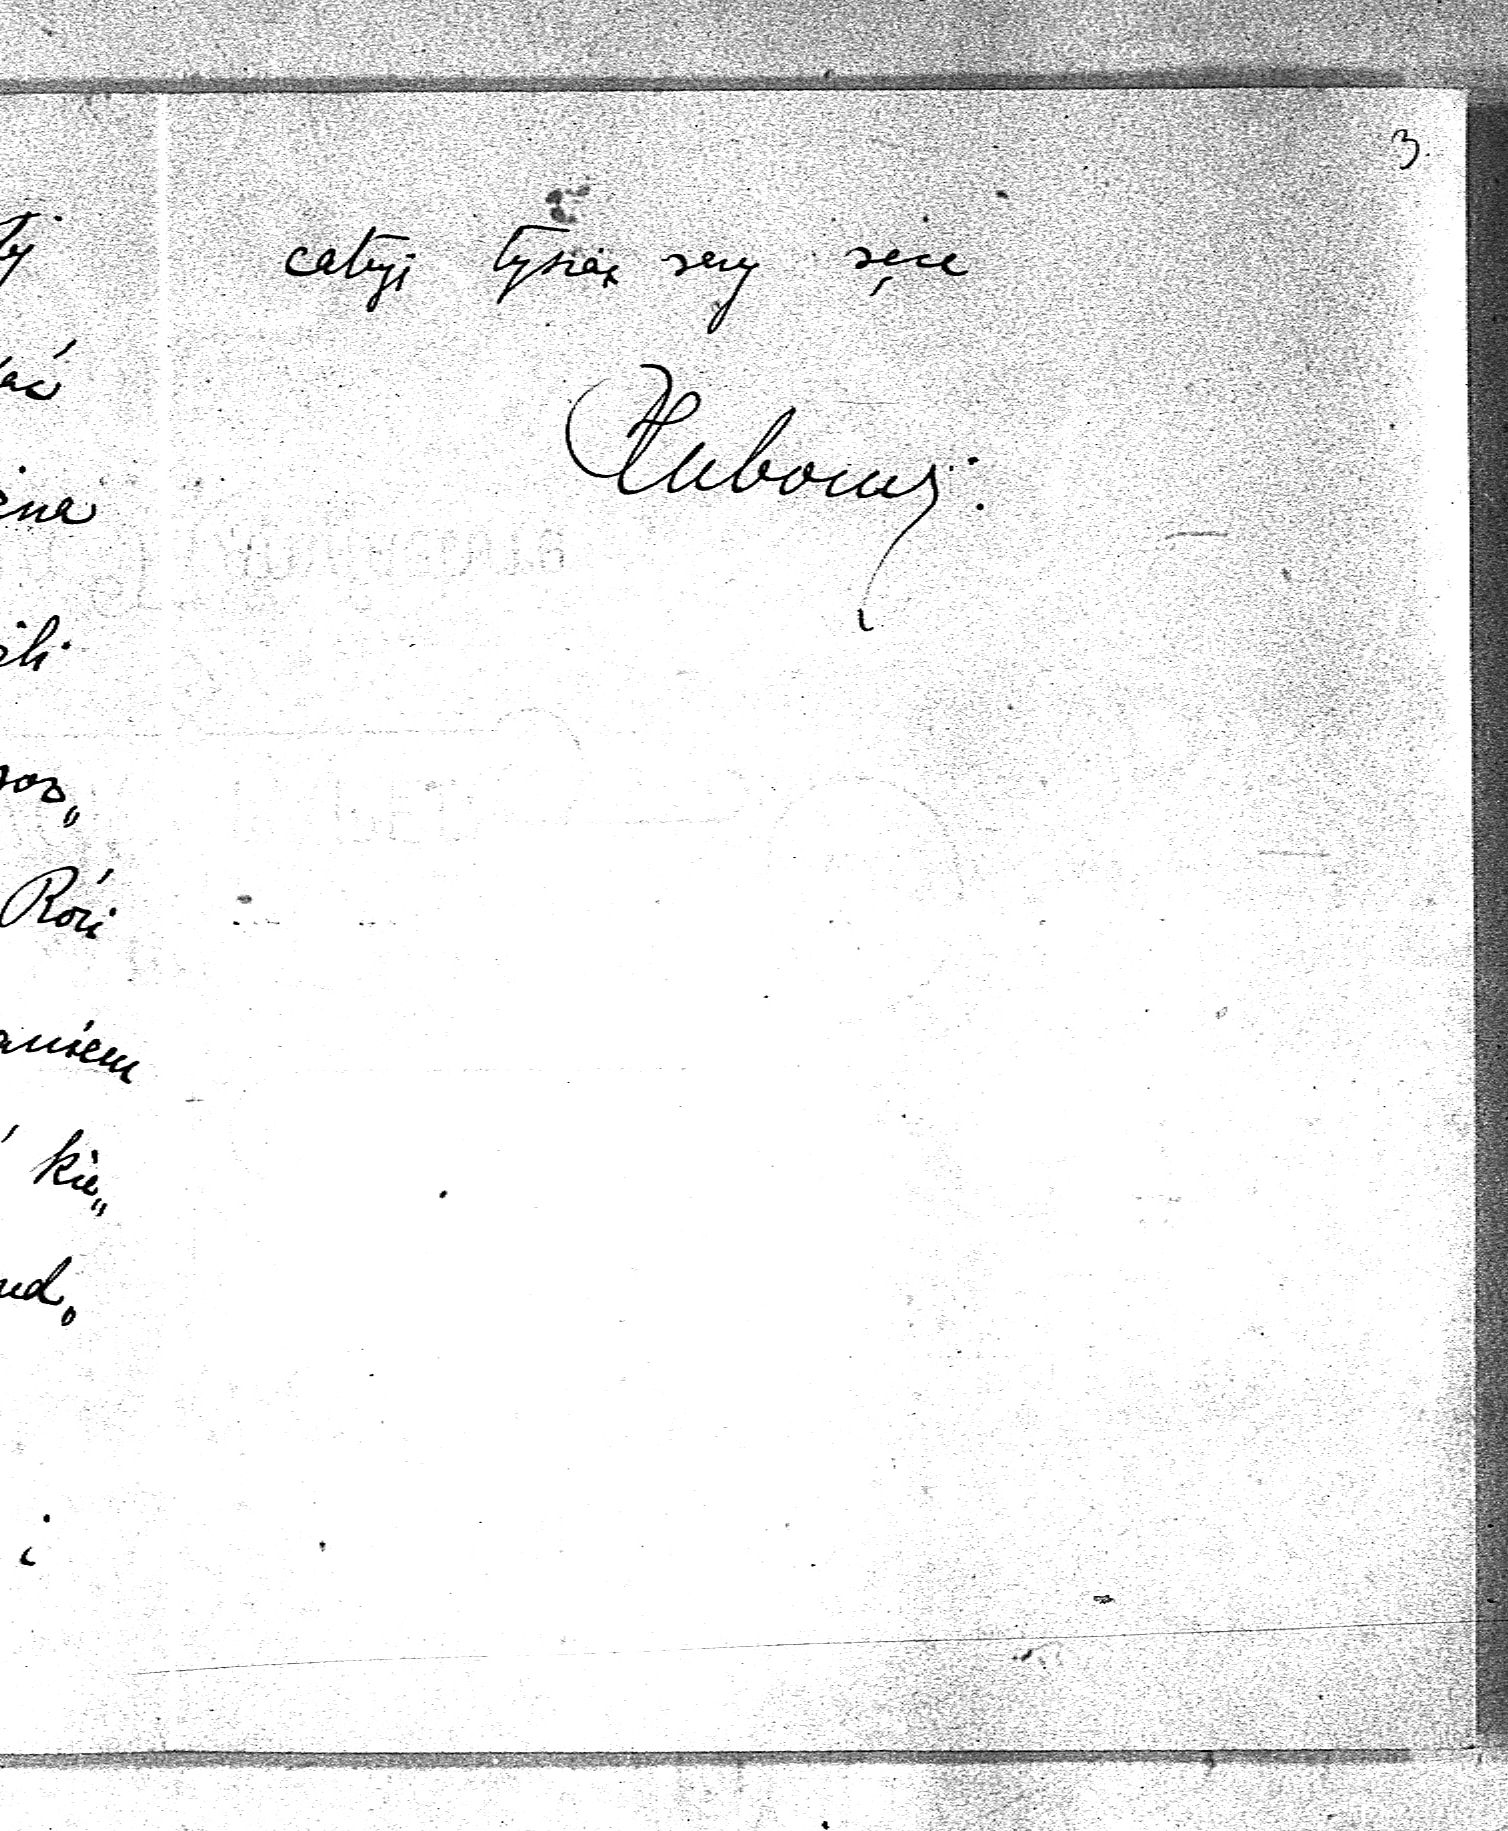 3.
całuję tysiąc razy ręce
Hubowy:
ty
ać
ena
ili
poz„
Rózi
aniem
kie„
ud„
i